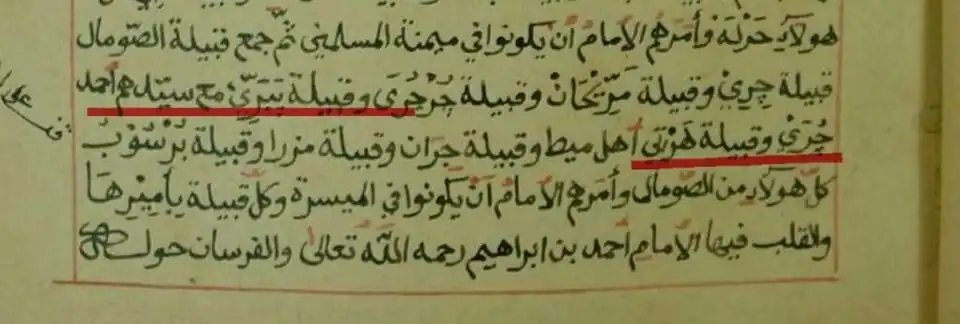 هولاء حَرْلَة وأمرهم الأمامُ انْ يكونوا في ميمنة المسلمين ثمّ جمع قبيلة الصّومال
قبيلة جِرِيْ وقبيلة مَرّيْحَانْ وقبيلة جُرْجُرَى وقبيلة يَبَرِّيْ مع سيّدهم أحمد
جُرَيْ وقبيلة هَرْتِي أهل ميط وقبيلة جَران وقبيلة مزرا وقبيلة بُرْسُوْبْ
كلّ هولاء من الصّومال وأمرهم الأمامُ أنْ يكونوا في الميسرة وكلّ قبيلة بأميْرِهَا
والقلب فيها الأمام أحمد بن ابراهيم رحمه اللّه تعالى والفرسان حوله